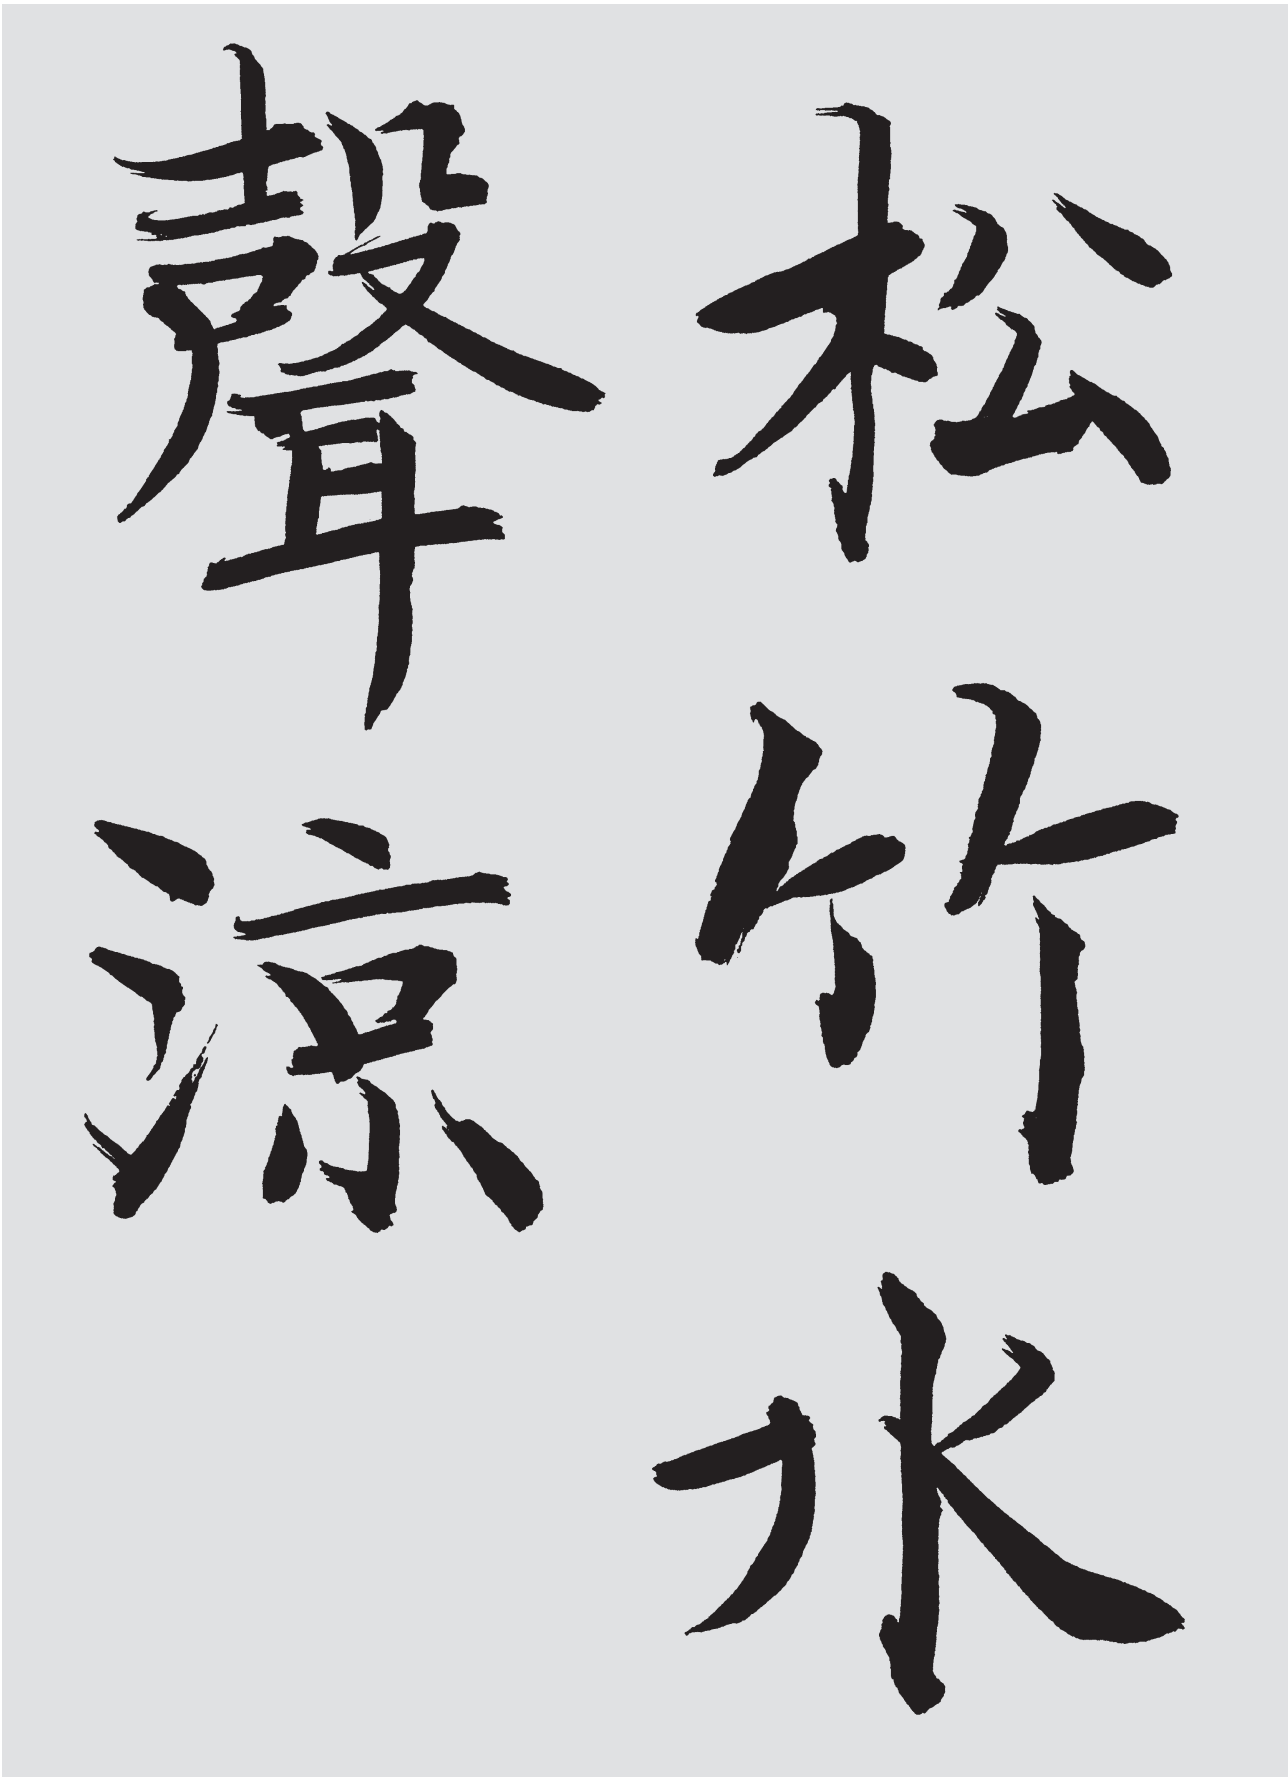 松竹水
聲涼